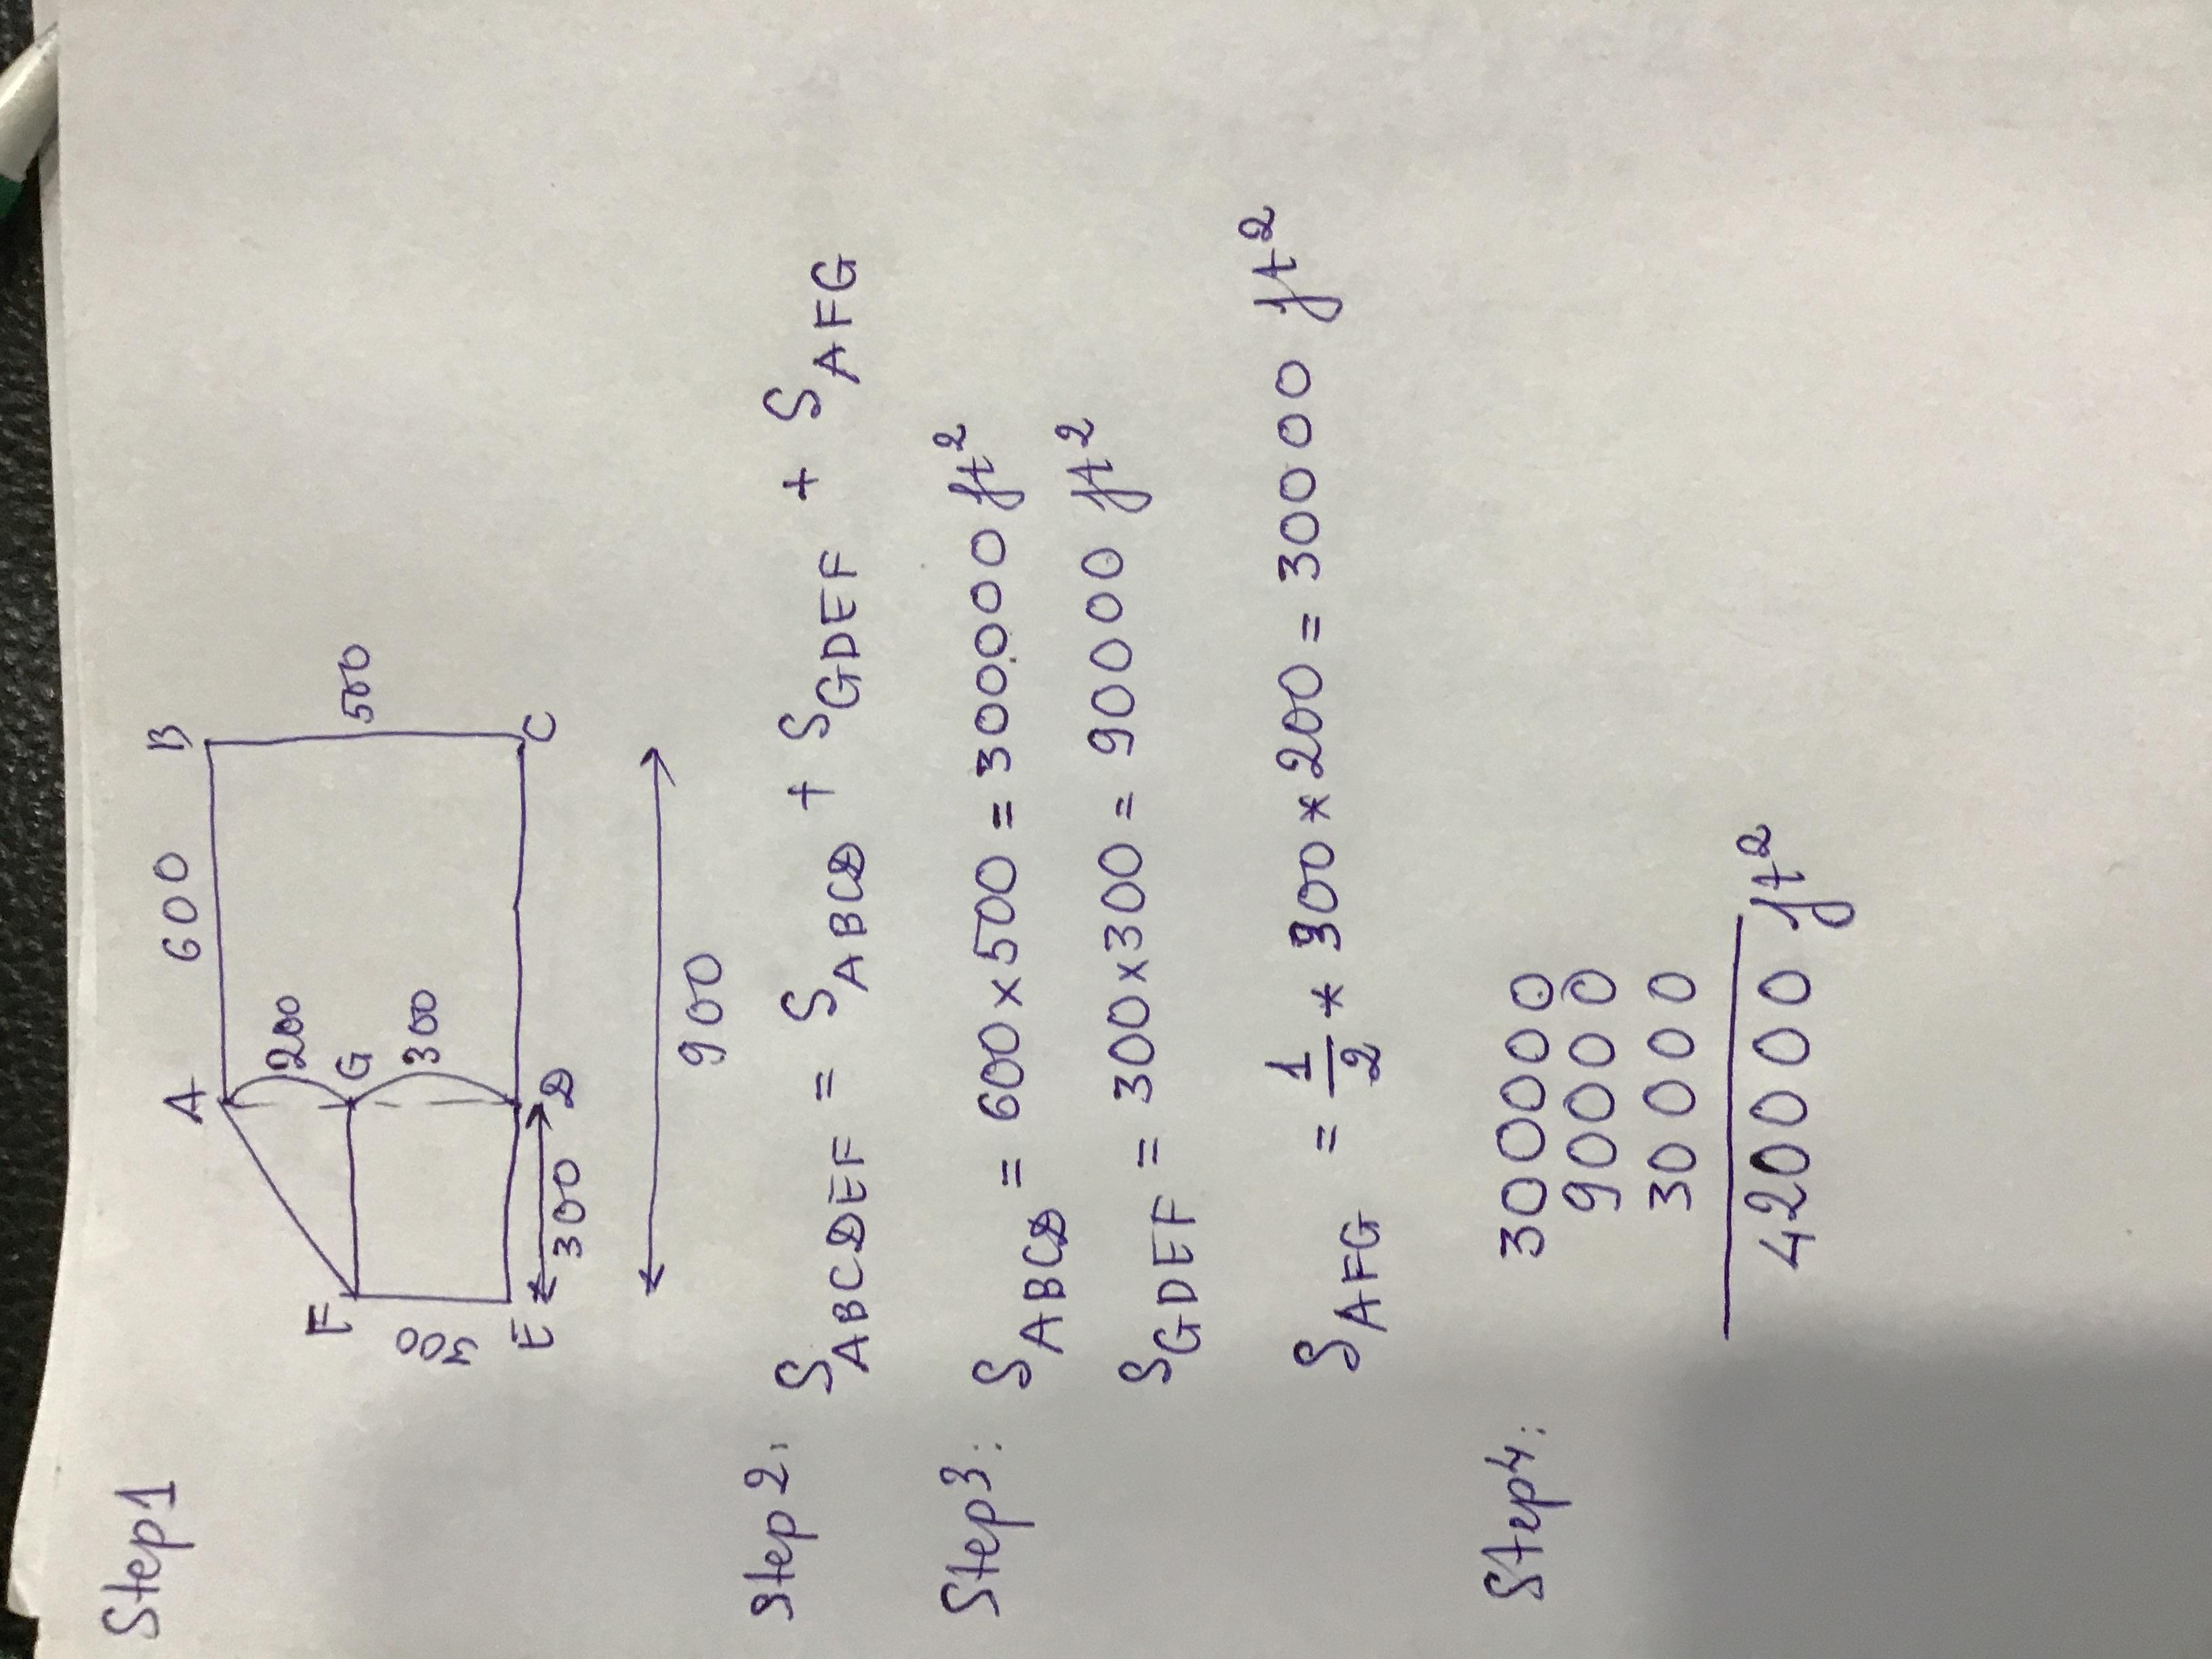 Step 1
A 600 B
200
F G 500
300 300
E 300 D C
900
Step 2: S ABCDEF = S ABCD + S GDEF + S AFG
Step 3: S ABCD = 600 x 500 = 300000 ft²
S GDEF = 300 x 300 = 90000 ft²
S AFG = 1/2 * 300 * 200 = 30000 ft²
Step 4: 300000
90000
30000
420000 ft²